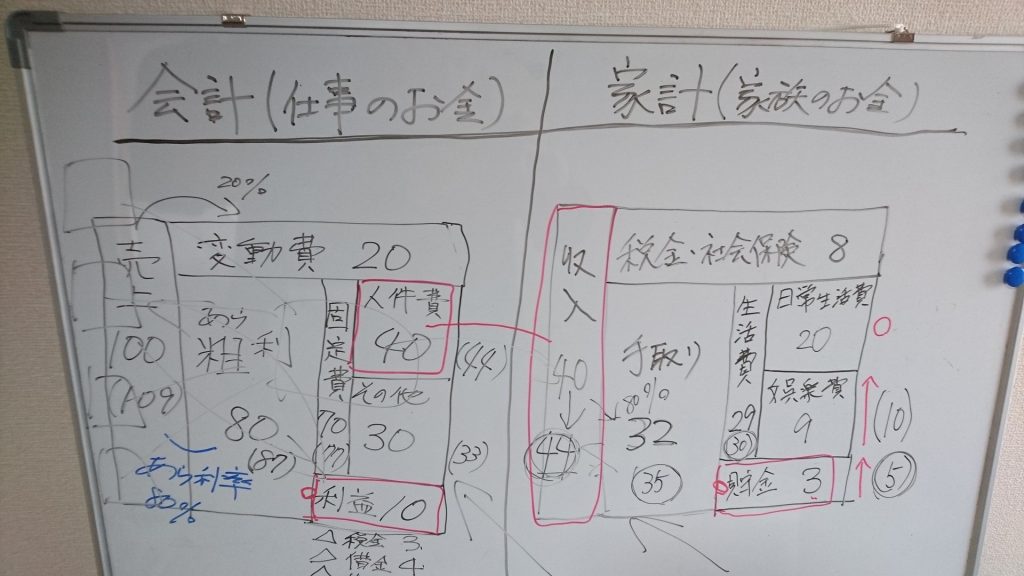 会計(仕事のお金)
家計(家族のお金)
20%
売上
100
(109)
変動費 20
あら
粗利
80
(87)
あらり率
80%
固定費
70
(77)
人件費
40
(44)
その他
30
(33)
利益 10
△税金 3
△借金 4
収入
40
44
税金・社会保険 8
手取り
80%
32
35
生活費
29
30
日常生活費
20
娯楽費
9
(10)
貯金 3
5